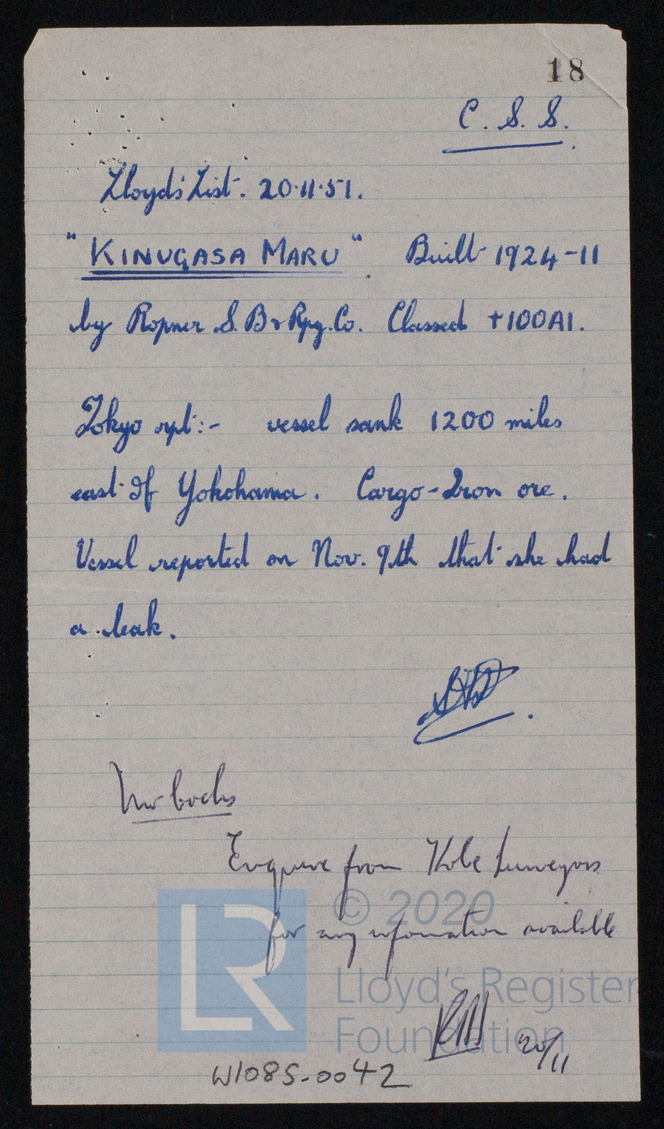 18
C. S. S.
Lloyd's List. 20.11.51.
"KINUGASA MARU". Built 1924-11
by Ropner S.B & Rpg. Co. Classed +100A1.
Tokyo rpt:- vessel sank 1200 miles
east of Yokohama. Cargo-Iron ore.
Vessel reported on Nov. 9th that she had
a leak.
Mr
Enquire from Kobe Surveyors
for any information available
20/11
© 2020
LR
Lloyd's Register
Foundation
W1085-0042